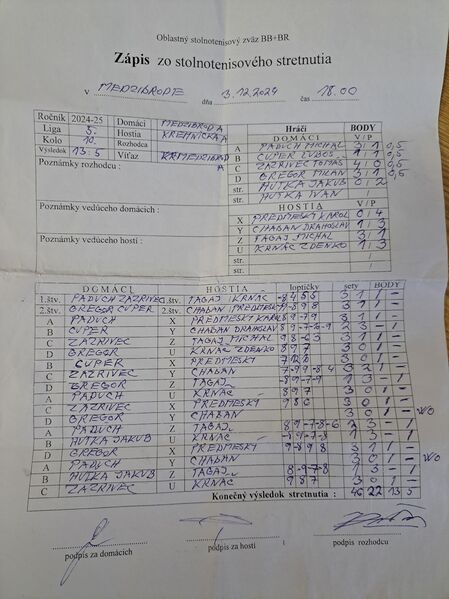 Oblastný stolnotenisový zväz BB+BR
Zápis zo stolnotenisového stretnutia
v MEDZIBRODIE dňa 3.12.2024 čas 18.00
Ročník 2024-25 Domáci MEDZIBROD A
Liga 5. Hostia KREMNIČKA A
Kolo 10. Rozhodca
Výsledok 13:5 Víťaz MEDZIBROD A
Poznámky rozhodcu :
Poznámky vedúceho domácich :
Poznámky vedúceho hostí :
Hráči BODY
DOMÁCI V / P
A PADUCH MICHAL 3 1 0,5
B CUPER ĽUBOŠ 1 1 0,5
C ZAZRIVEC TOMÁŠ 4 0 0,5
D GREGOR MILAN 3 1 0,5
str. HUTKA JAKUB 0 2
str. HUTKA IVAN
HOSTIA V / P
X PREDMESKÝ KAROL 0 4
Y CHABAN DRAHOSLAV 1 3
Z TAGAJ MICHAL 3 1
U KRNÁČ ZDENKO 1 3
str.
str.
DOMÁCI HOSTIA loptičky sety BODY
1.štv. PADUCH ZAZRIVEC 1.štv. TAGAJ KRNÁČ 3 1 1 -
2.štv. GREGOR CUPER 2.štv. CHABAN PREDMESKÝ 3 1 1 -
A PADUCH X PREDMESKÝ KAROL 8 9 7 9 3 1 1 -
B CUPER Y CHABAN DRAHOSLAV 8 9 -7 -6 -9 2 3 - 1
C ZAZRIVEC Z TAGAJ MICHAL 3 1 1 -
D GREGOR U KRNÁČ ZDENKO 3 0 1 -
B CUPER X PREDMESKÝ 3 0 1 -
C ZAZRIVEC Y CHABAN 3 2 1 -
D GREGOR Z TAGAJ 1 3 - 1
A PADUCH U KRNÁČ 8 9 7 3 0 1 -
C ZAZRIVEC X PREDMESKÝ 9 8 6 3 0 1 -
D GREGOR Y CHABAN 3 0 1 - WO
A PADUCH Z TAGAJ 8 9 -7 -8 -6 2 3 - 1
B HUTKA JAKUB U KRNÁČ 1 3 - 1
D GREGOR X PREDMESKÝ 3 1 1 -
A PADUCH Y CHABAN 3 0 1 - WO
B HUTKA JAKUB Z TAGAJ 8 -9 -7 -8 1 3 - 1
C ZAZRIVEC U KRNÁČ 9 8 7 3 0 1 -
Konečný výsledok stretnutia : 46 22 13 5
podpis za domácich podpis za hostí podpis rozhodcu